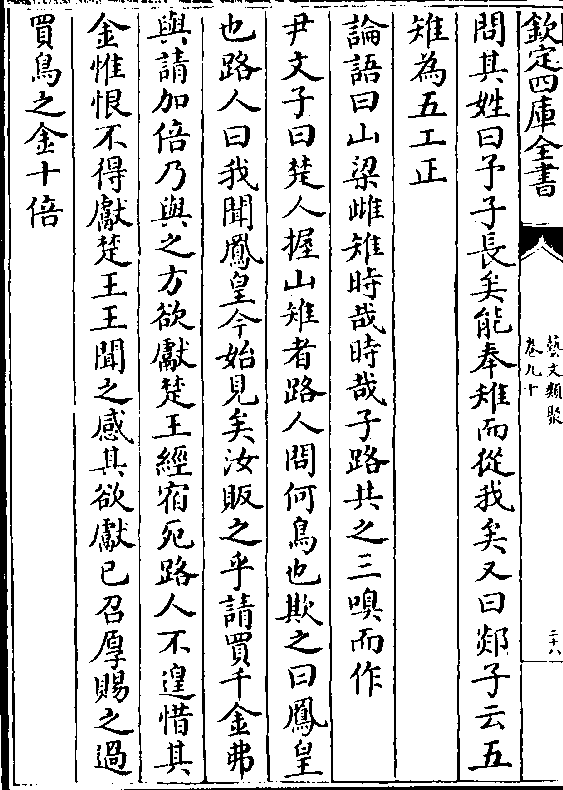 欽定四庫全書
藝文類聚
卷九十
二十八
問其姓曰予子長矣能奉雉而從我矣又曰郯子云五
雉為五工正
論語曰山梁雌雉時哉時哉子路共之三嗅而作
尹文子曰楚人握山雉者路人問何鳥也欺之曰鳳皇
也路人曰我聞鳳皇今始見矣汝販之乎請買千金弗
與請加倍乃與之方欲獻楚王經宿死路人不遑惜其
金惟恨不得獻楚王王聞之感其欲獻已召厚賜之過
買鳥之金十倍